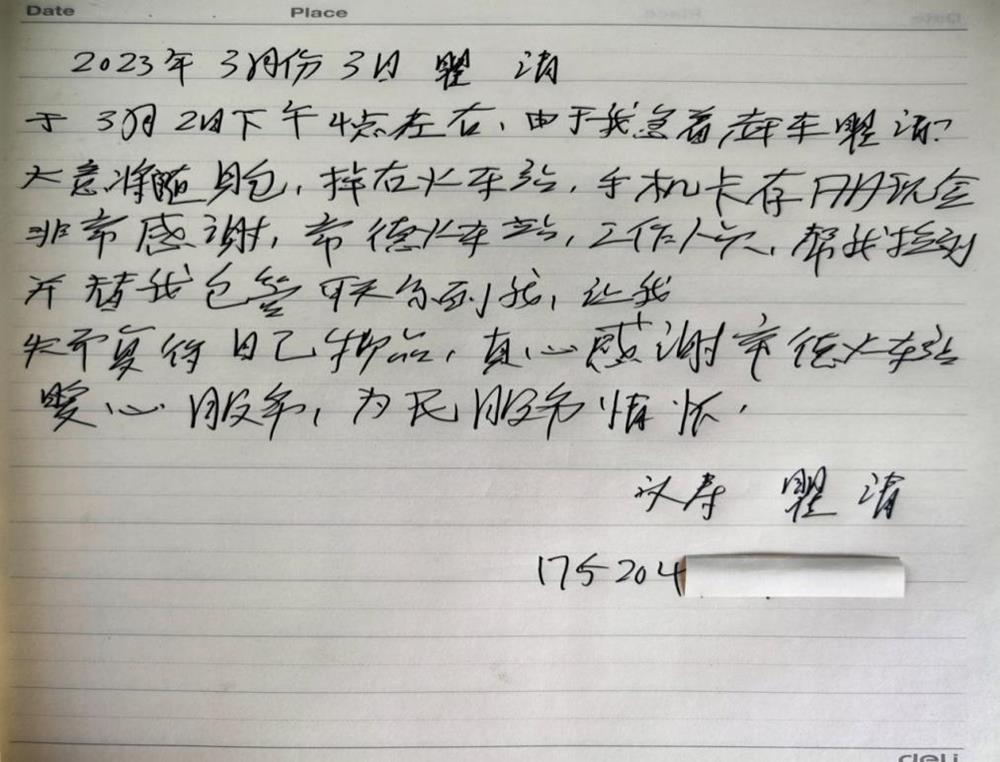 Date Place
2023年3月份3日 瞿 清
于 3月2日下午4点左右、由于我急着赶车瞿清
大意将随身包,掉在火车站,手机卡存 现金
非常感谢,常德火车站,工作人员,帮我捡到
并替我包管 联 到我,让我
失而复得自己物品,真心感谢常德火车站
暖心服务,为民服务情怀.
汉寿 瞿 清
175204
deli